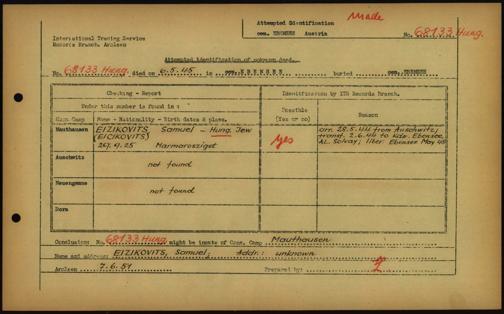 Attempted Identification
Made
International Tracing Service
Records Branch, Arolsen
cem. EBENSEE Austria
No. 68133 Hung.
Attempted identification of unknown dead.
No. 68133 Hung. died on 8.5.45 in cem. EBENSEE buried cem. EBENSEE
Checking - Report
Identifications by ITS Records Branch.
Under this number is found in :
Possible (Yes or no)
Reason
Conc. Camp
Name - Nationality - Birth dates & place.
Mauthausen
EIZIKOVITS, Samuel - Hung. Jew
(EICIKOVITS)
25. 9. 25 Marmarossziget
Yes
arr. 28.5.44 from Auschwitz;
transf. 2.6.44 to Kdo. Ebensee,
AL. Solvay; liber. Ebensee May 45
Auschwitz
not found
Neuengamme
not found
Dora
Conclusion: No. 68133 Hung. might be inmate of Conc. Camp Mauthausen
Name and address: EIZIKOVITS, Samuel; Addr.: unknown
Arolsen 7.6.51 Prepared by: